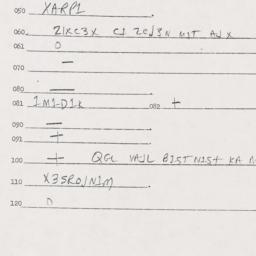 050 XARP1
060 21XC3X C1 2CJ3N MIT AJX
061 0
070 —
080 —
081 1M1-D1K 082 +
090 —
091 +
100 + QGL VAJL B1STN1S+ KA
110 X3SRO/N1M
120 0